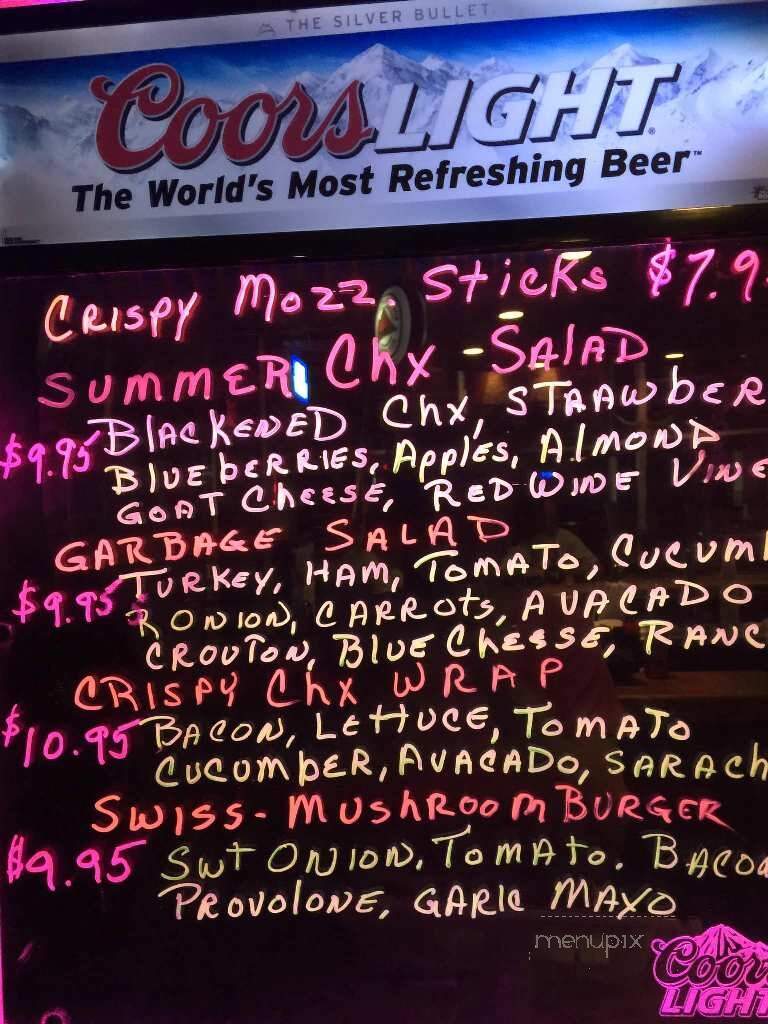 THE SILVER BULLET
Coors LIGHT
The World's Most Refreshing Beer™
CRISPY Mozz. Sticks $7.9
SUMMER Chx - SALAD -
$9.95 BLACKENED Chx, STRAWBER
BLUEBERRIES, APPlES, AlMOND
GOAT ChEESE, RED WINE VINE
GARBAGE SALAD
$9.95 TURKEY, HAM, TOMATO, CUCUM
R ONION, CARROTS, AVACADO
CROUTON, BlUE ChEESE, RANC
CRISPY Chx WRAP
$10.95 BACON, LETTUCE, TOMATO
CUCUMBER, AVACADO, SARACh
SWISS - MUSHROOM BURGER
$9.95 SWT ONION, TOMATO. BACO
PROVOLONE, GARlC MAYO
menupix
Coor
LIGHT